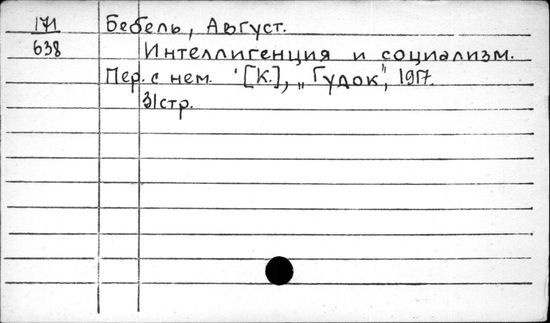 171 Бебель, Август.
638 Интеллигенция и социализм.
Пер. с нем. [К.], „Гудок", 1917.
31 стр.